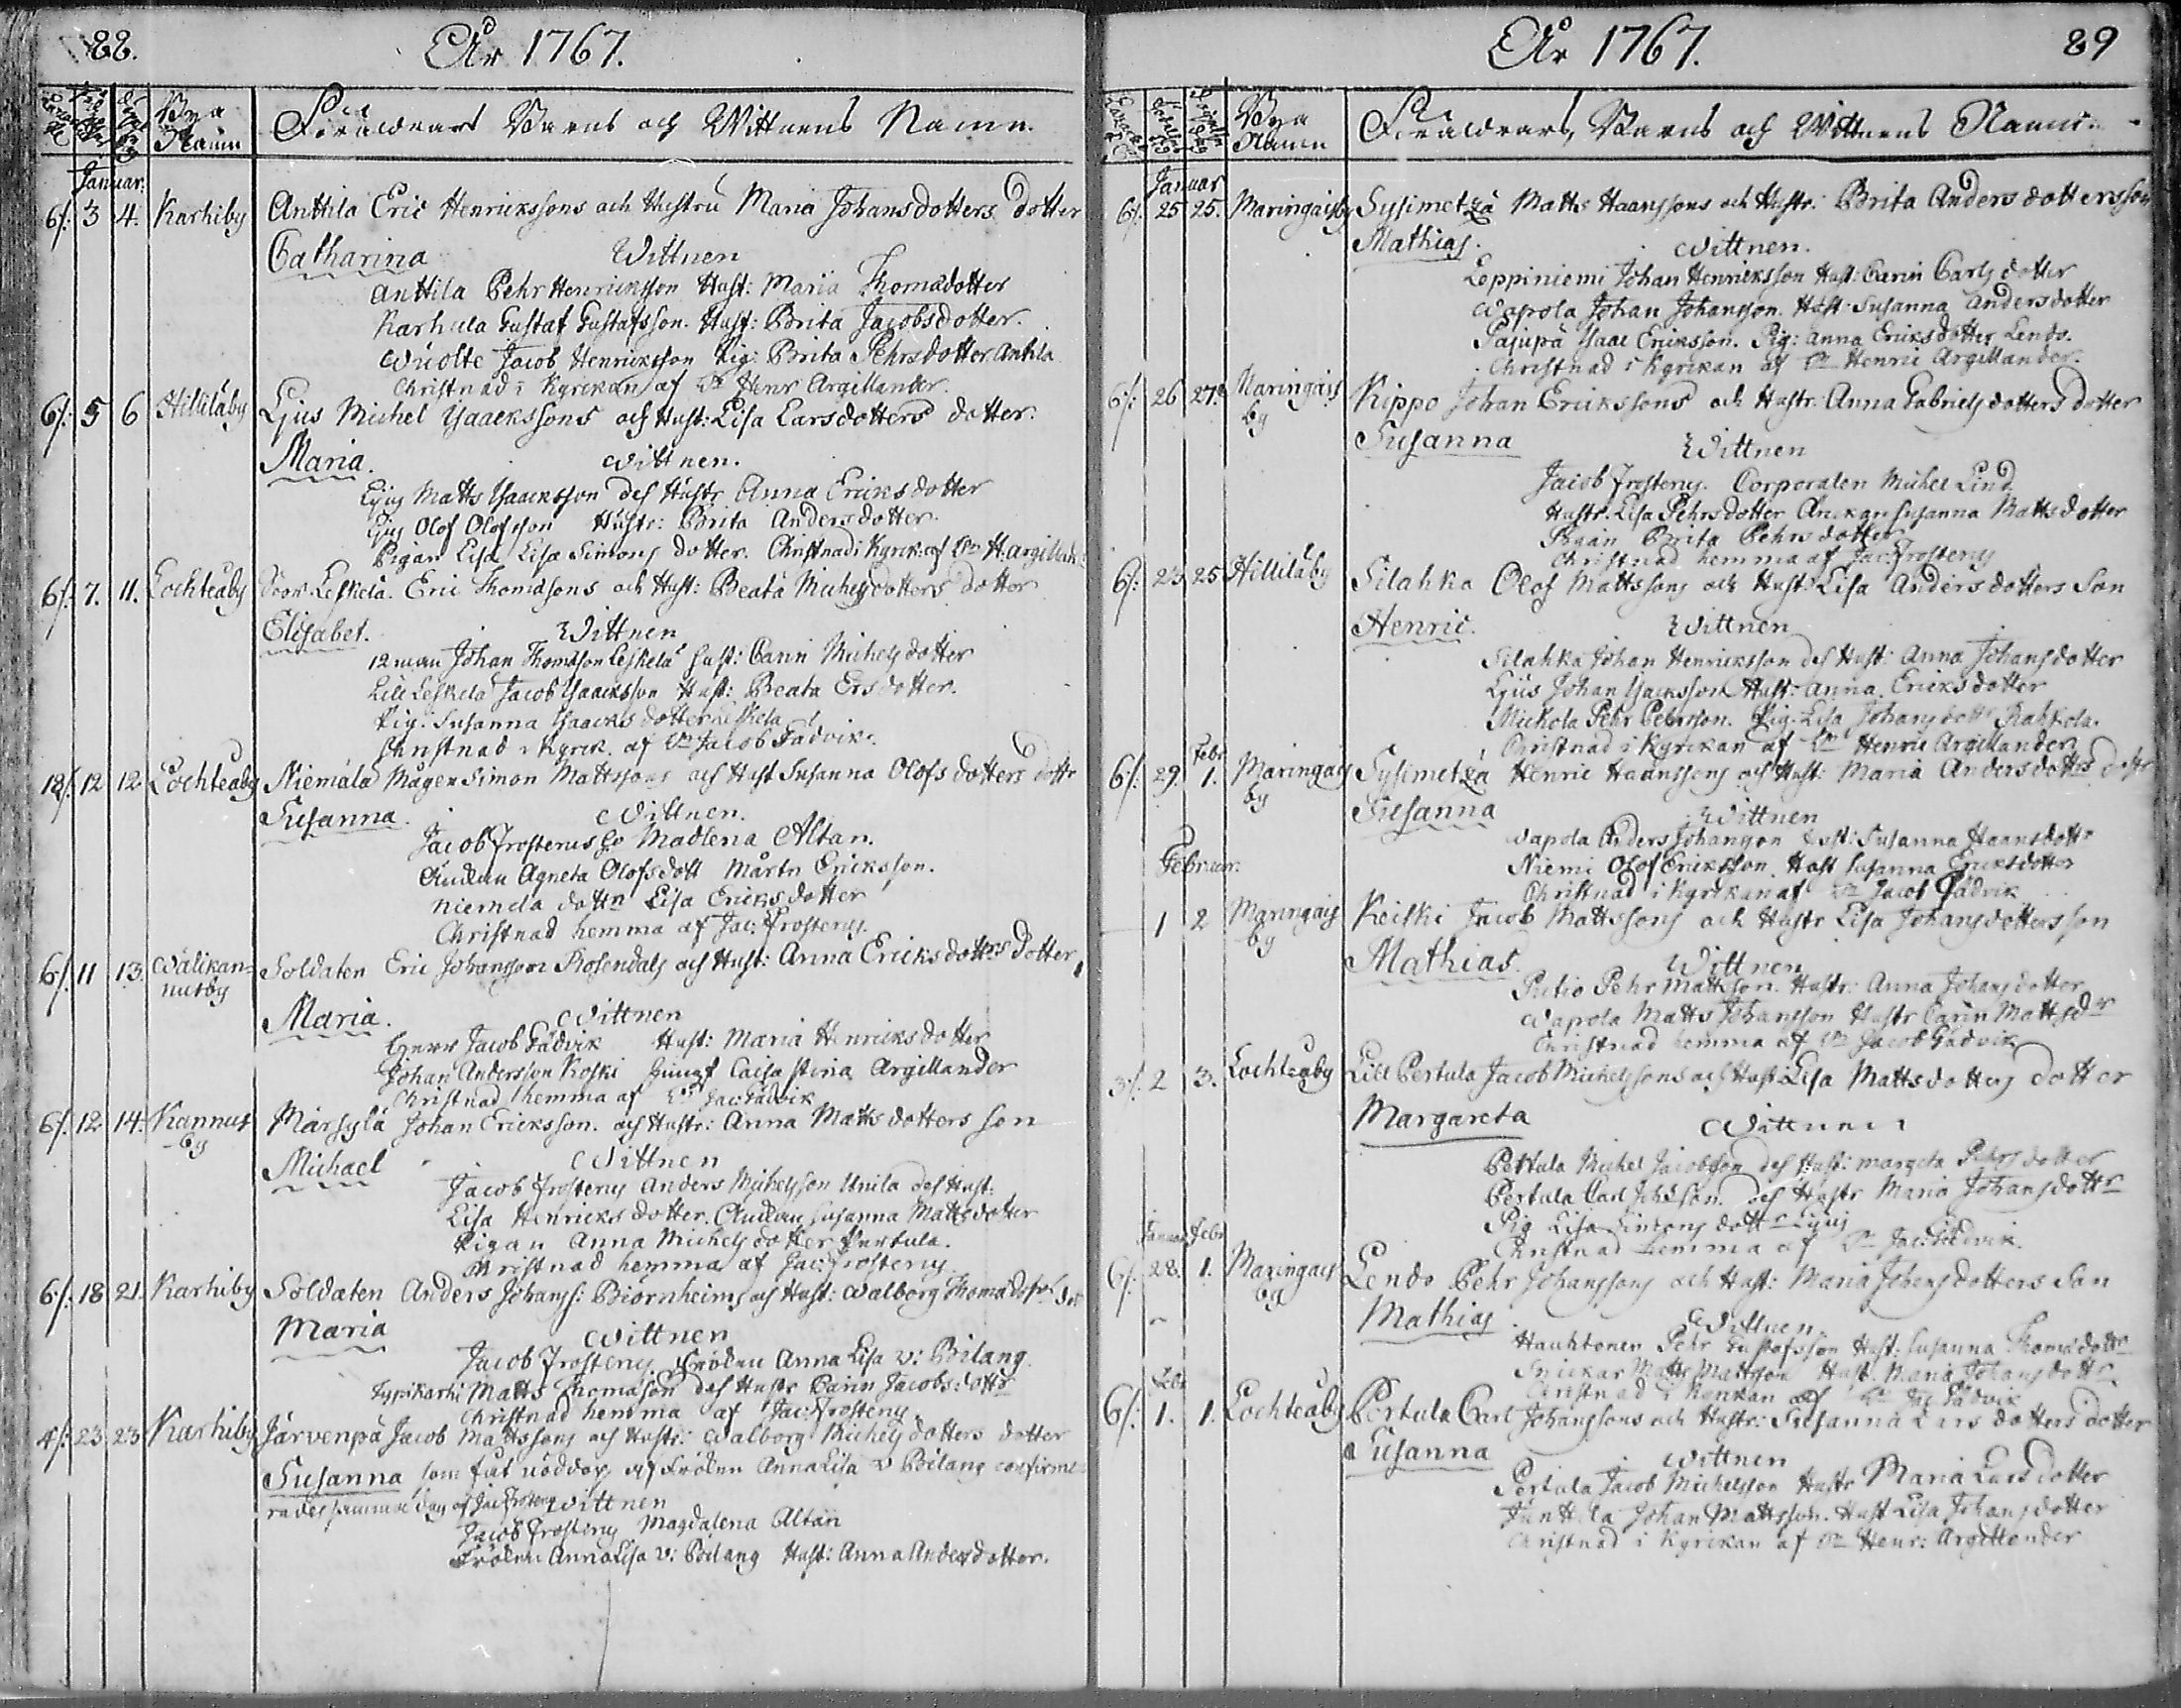 88.
År 1767.
Bya Namn
Föräldrars Barns och Wittnens Namn.
Januar:
6/: 3 4. Karhiby Anttila Eric Henrickssons och Hustru Maria Johansdotters dotter
Catharina Wittnen
Anttila Pehr Henricksson Hust: Maria Thomædotter
Karhula Gustaf Gustafsson. Hust: Brita Jacobsdotter.
Wuolte Jacob Henricksson Pig: Brita Pehrsdotter Antila
Christnad i Kyrckan af Hr Henr Argillander.
6/: 5 6 Hilliläby Ljus Michel Ysaackssons och Hust: Lisa Larsdotters dotter.
Maria. Wittnen.
Ljus Matts Ysaacksson des Hustr Anna Ericksdotter
Ljus Olof Olofsson Hustr: Brita Andersdotter.
Pigan Lisa Lisa Simons dotter. Christnad i Kyrck: af Hr H. Argilland:
6/: 7. 11. Lochteåby Leskelä. Eric Thomæsons och Hust: Beata Michelsdotters dotter
Elisabet. Wittnen
12man Johan Thomæson Leskelä Hust: Carin Michelsdotter
Lill Leskelä Jacob Ysaacksson Hust: Beata Ersdotter.
Pig. Susanna Ysaacksdotter Leskelä
Christnad i Kyrck. af Hr Jacob Gadvik.
12/: 12 12 Lochteåby Niemälä Mågen Simon Mattssons och Hust Susanna Olofsdotters dottr
Susanna. Wittnen.
Jacob Frosterus Madlena Altan.
Änckan Agneta Olofsdott Mårtn Ericksson.
Niemelä dottn Lisa Ericksdotter
Christnad hemma af Jac: Frosterus.
6/: 11 13. Wälikan= Soldaten Eric Johansson Rosendals och Hust: Anna Ericksdotters dotter,
nusby
Maria. Wittnen
Herr Jacob Gadvik Hust: Maria Henricksdotter
Johan Andersson Koski Jungf Caisa Stina Argillander
Christnad hemma af Hr Jac: Gadvik
6/: 12 14. Kannus Märsylä Johan Ericksson. och Hustr: Anna Mattsdotters son
by
Michael Wittnen
Jacob Frosterus Anders Michelsson Unila des Hust:
Lisa Henricksdotter. Änckan Susanna Mattsdotter
Pigan Anna Michelsdotter Pertula.
Christnad hemma af Jac: Frosterus.
6/: 18 21. Karhiby Soldaten Anders Johanss: Biörnheims och Hust: Walborg Thomædotrs dot
Maria Wittnen
Jacob Frosterus Fröken Anna Lisa v: Bilang
Typikarhi Matts Thomæson des Hustr Carin Jacobs:dottr
Christnad hemma af Jac: Frosterus
4/: 23 23 Karhiby Järvenpä Jacob Mattssons och Hustr: Walborg Michelsdotters dotter
Susanna som fåt nöddop af Fröken Anna Lisa v Bilang confirme
rades samma dag af Jac Frosterus Wittnen
Jacob Frosterus Magdalena Altan
Fröken Anna Lisa v: Bilang Hust: Anna Andersdotter.
År 1767.
89
Bya Namn
Föräldrars, Barns och Wittnens Namn.
Januar
6/: 25 25. Maringaisby Sysimetzä Matts Haanssons och Hustr: Brita Andersdottersson
Mathias. Wittnen.
Leppiniemi Johan Henricksson Hust: Carin Carlsdotter
Wapola Johan Johansson. Hust Susanna Andersdotter
Pajupä Ysaac Ericksson. Pig: Anna Ericksdotter Lendo.
Christnad i Kyrckan af Hr Henric Argillander.
6/: 26 27. Maringais Kippo Johan Erickssons och Hustr: Anna Gabrielsdotters dotter
by
Susanna Wittnen
Jacob Frosterus. Corporalen Michel Lind
Hustr. Lisa Pehrsdotter Änckan Susanna Mattsdotter
Pigan Brita Pehrsdotter
Christnad hemma af Jac: Frosterus
6/: 23 25 Hilliläby Silahka Olof Mattssons och Hust: Lisa Andersdotters Son
Henric. Wittnen
Silahka Johan Henricksson des Hust: Anna Johansdotter
Ljus Johan Ysacksson Hust: Anna Ericksdotter
Mickola Pehr Pehrsson. Pig. Lisa Johansdottr Rahkola.
Christnad i Kyrckan af Hr Henric Argillander
Febr
6/: 29. 1. Maringais Sysimetzä Henric Haanssons och Hust: Maria Andersdotters dottr
by
Susanna Wittnen
Wapola Anders Johansson Hust: Susanna Haansdottr
Niemi Olof Ericksson. Hust Susanna Ericksdotter
Christnad i Kyrckan af Hr Jacob Gadvik
Februar:
1 2 Maringais Keiski Jacob Mattssons och Hustr Lisa Johansdottersson
by
Mathias. Wittnen
Putio Pehr Mattsson. Hustr: Anna Johansdotter
Wapola Matts Johansson Hustr Carin Mattsdr
Christnad hemma af Hr Jacob Gadvik
3/: 2 3. Lochteåby Lill Pertula Jacob Michelssons och Hust: Lisa Mattsdotters dotter
Margareta Wittnen
Pertula Michel Jacobsson des Hust: Margeta Pehrsdotter
Pertula Carl Johansson. des Hustr Maria Johansdottr
Pig Lisa Simons dottr Ljus
Christnad hemma af Hr Jac: Gadvik
Januar Febr
6/: 28. 1. Maringais Lendo Pehr Johanssons och Hust: Maria Johansdotters Son
by
Mathias Wittnen
Hauhtonen Pehr Gustafsson Hust: Susanna Thomædottr
Snickar Matts Mattsson Hust. Maria Johansdottr
Christnad i Kyrckan af Hr Jac Gadvik
Febr
6/: 1. 1. Lochteåby Pertula Carl Johanssons och Hustr: Susanna Larsdotters dotter
Susanna Wittnen
Pertula Jacob Michelsson Hustr Maria Larsdotter
Junttila Johan Mattsson. Hust Lisa Johansdotter
Christnad i Kyrckan af Hr Henr: Argillander